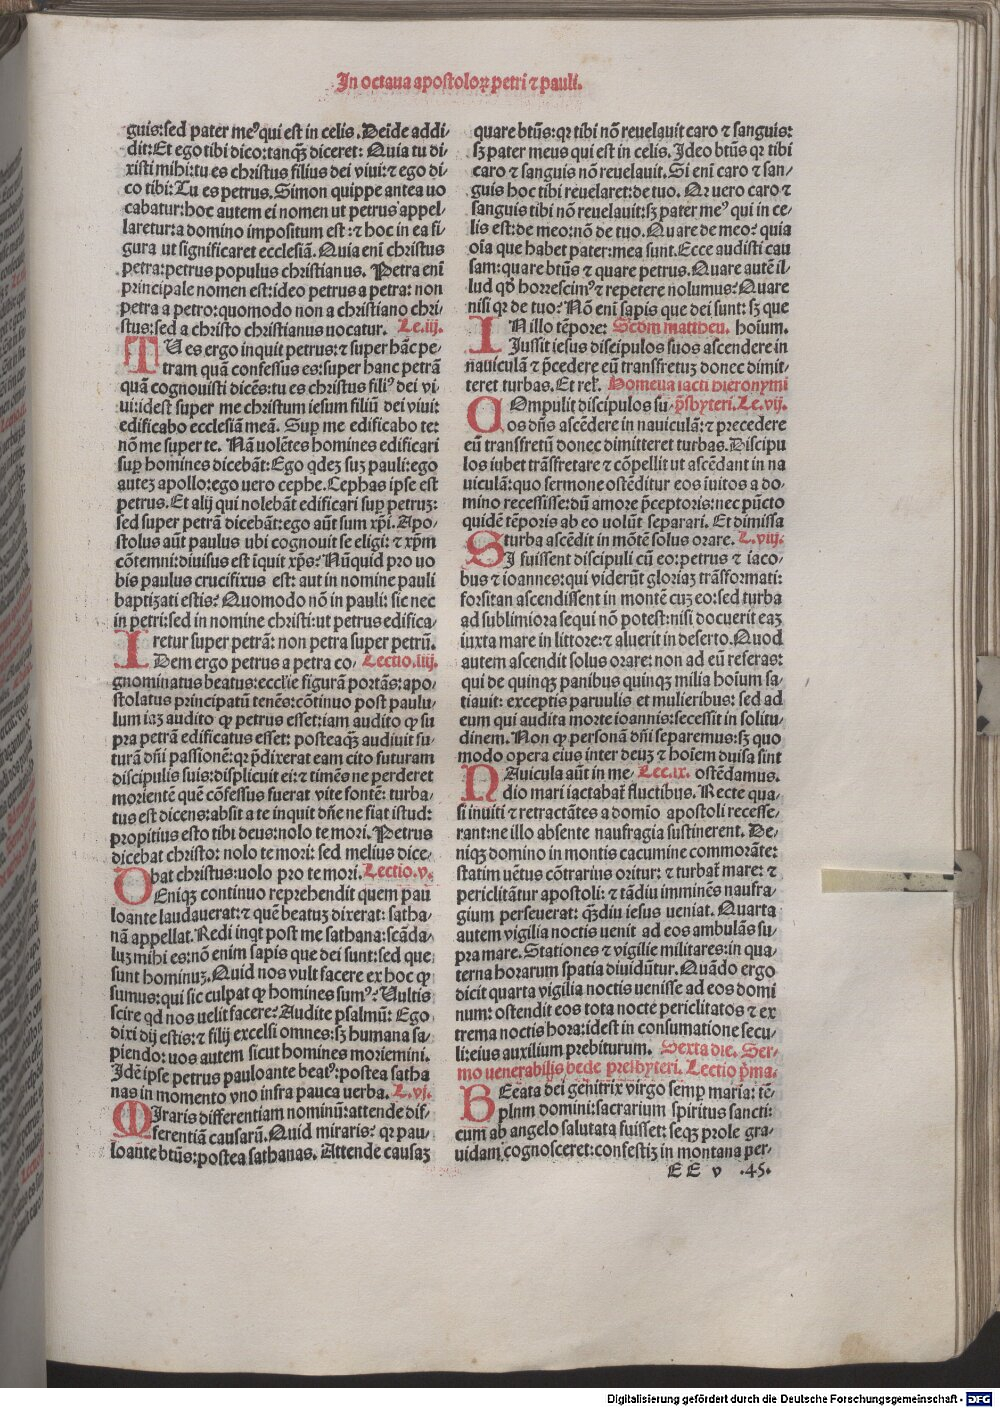 In octaua apostoloꝝ petri ⁊ pauli.
guis:sed pater meꝰ qui est in celis. Deide addi⸗
dit:Et ego tibi dico:tanqꝫ diceret: Quia tu di⸗
xisti mihi:tu es christus filius dei viui:⁊ ego di⸗
co tibi:Tu es petrus. Simon quippe antea uo
cabatur:hoc autem ei nomen ut petrus appel⸗
laretur:a domino impositum est:⁊ hoc in ea fi⸗
gura ut significaret ecclesiã. Quia eni christus
petra:petrus populus christianus. Petra eni
principale nomen est:ideo petrus a petra: non
petra a petro:quomodo non a christiano chri⸗
stus:sed a christo christianus uocatur. Le.iij.
TU es ergo inquit petrus:⁊ super hãc pe⸗
tram quã confessus es:super hanc petrã
quã cognouisti dicẽs:tu es christus filiꝰ dei vi⸗
ui:idest super me christum iesum filiũ dei viui:
edificabo ecclesiã meã. Suꝑ me edificabo te:
nõ me super te. Nã uolẽtes homines edificari
suꝑ homines dicebãt:Ego qdeꝫ suꝫ pauli:ego
auteꝫ apollo:ego uero cephe. Cephas ipse est
petrus. Et alij qui nolebãt edificari suꝑ petruꝫ:
sed super petrã dicebãt:ego aũt sum xp̃i. Apo⸗
stolus aũt paulus ubi cognouit se eligi: ⁊ xp̃m
cõtemni:diuisus est iquit xp̃s? Nũquid pro uo
bis paulus crucifixus est: aut in nomine pauli
baptizati estis? Quomodo nõ in pauli: sic nec
in petri:sed in nomine christi:ut petrus edifica⸗
retur super petrã: non petra super petrũ.
IDem ergo petrus a petra co⸗ Lectio.iiij.
gnominatus beatus:ecclie figurã portãs:apo⸗
stolatus principatũ tenẽs:cõtinuo post paulu⸗
lum iaꝫ audito ꝙ petrus esset:iam audito ꝙ su
pra petrã edificatus esset: posteaqꝫ audiuit fu⸗
turã dñi passionẽ:qr p̃dixerat eam cito futuram
discipulis suis:displicuit ei:⁊ timẽs ne perderet
morientẽ quẽ cõfessus fuerat vite fontẽ: turba⸗
tus est dicens:absit a te inquit dñe ne fiat istud:
propitius esto tibi deus:nolo te mori. Petrus
dicebat christo: nolo te mori: sed melius dice⸗
bat christus:uolo pro te mori. Lectio.v.
DEniqꝫ continuo reprehendit quem pau
loante laudauerat:⁊ quẽ beatuꝫ dixerat: satha⸗
nã appellat. Redi inqt post me sathana:scãda⸗
luꝫ mihi es:nõ enim sapis que dei sunt:sed que
sunt hominuꝫ. Quid nos vult facere ex hoc ꝙ
sumus:qui sic culpat ꝙ homines sumꝰ? Vultis
scire qd nos uelit facere? Audite psalmũ: Ego
dixi dij estis:⁊ filij excelsi omnes:sꝫ humana sa⸗
piendo: uos autem sicut homines moriemini.
Idẽ ipse petrus pauloante beatꝰ:postea satha
nas in momento vno infra pauca verba. L.vj.
MIraris differentiam nominũ:attende dif⸗
ferentiã causarũ. Quid miraris? qr pau⸗
loãte btũs:postea sathanas. Attende causaꝫ
quare btũs:qr tibi nõ reuelauit caro ⁊ sanguis:
sꝫ pater meus qui est in celis. Ideo btũs qr tibi
caro ⁊ sanguis nõ reuelauit. Si eni caro ⁊ san⸗
guis hoc tibi reuelaret:de tuo. Qr vero caro ⁊
sanguis tibi nõ reuelauit:sꝫ pater meꝰ qui in ce⸗
lis est:de meo:nõ de tuo. Quare de meo? quia
oĩa que habet pater:mea sunt. Ecce audisti cau
sam:quare btũs ⁊ quare petrus. Quare autẽ il⸗
lud qð horrescimꝰ ⁊ repetere nolumus? Quare
nisi qr de tuo? Nõ eni sapis que dei sunt: sꝫ que
IN illo tẽpore: Scðm mattheu. hoĩum.
Iussit iesus discipulos suos ascendere in
nauiculã ⁊ p̃cedere eũ transfretuꝫ donec dimit⸗
teret turbas. Et rel̃. Homelia sacti hieronymi
COmpulit discipulos su⸗ p̃sbyteri. Le.vij.
os dñs ascẽdere in nauiculã: ⁊ precedere
eũ transfretũ donec dimitteret turbas. Discipu
los iubet trãsfretare ⁊ cõpellit ut ascẽdant in na
uiculã: quo sermone ostẽditur eos iuitos a do⸗
mino recessisse:dũ amore p̃ceptoris:nec pũcto
quidẽ tẽporis ab eo uolũt separari. Et dimissa
turba ascẽdit in mõtẽ solus orare. L.viij.
SI fuissent discipuli cũ eo:petrus ⁊ iaco⸗
bus ⁊ ioannes:qui viderũt gloriaꝫ trãsformati:
forsitan ascendissent in montẽ cuꝫ eo:sed turba
ad sublimiora sequi nõ potest:nisi docuerit eaꝫ
iuxta mare in littore:⁊ aluerit in deserto. Quod
autem ascendit solus orare: non ad eũ referas:
qui de quinqꝫ panibus quinqꝫ milia hoĩum sa⸗
tiauit: exceptis paruulis et mulieribus: sed ad
eum qui audita morte ioannis:secessit in solitu⸗
dinem. Non ꝙ personã dñi separemus:sꝫ quo
modo opera eius inter deuꝫ ⁊ hoĩem diuisa sint
NAuicula aũt in me⸗ Lec.ix. ostẽdamus.
dio mari iactabat̃ fluctibus. Recte qua⸗
si inuiti ⁊ retractãtes a domĩo apostoli recesse⸗
rant:ne illo absente naufragia sustinerent. De⸗
niqꝫ domino in montis cacumine commorãte:
statim uẽtus cõtrarius oritur: ⁊ turbat̃ mare: ⁊
periclitãtur apostoli: ⁊ tãdiu imminẽs naufra⸗
gium perseuerat: qꝫdiu iesus ueniat. Quarta
autem vigilia noctis uenit ad eos ambulãs su⸗
pra mare. Stationes ⁊ vigilie militares:in qua⸗
terna horarum spatia diuidũtur. Quãdo ergo
dicit quarta vigilia noctis uenisse ad eos domi
num: ostendit eos tota nocte periclitatos ⁊ ex
trema noctis hora:idest in consumatione secu⸗
li:eius auxilium prebiturum. Sexta die. Ser⸗
mo uenerabilis bede presbyteri. Lectio p̃ma.
BEata dei genitrix virgo semꝑ maria: tẽ⸗
plum domini:sacrarium spiritus sancti:
cum ab angelo salutata fuisset: seqꝫ prole gra⸗
uidam cognosceret:confestiꝫ in montana per⸗
EE v .45.
Digitalisierung gefördert durch die Deutsche Forschungsgemeinschaft - DFG